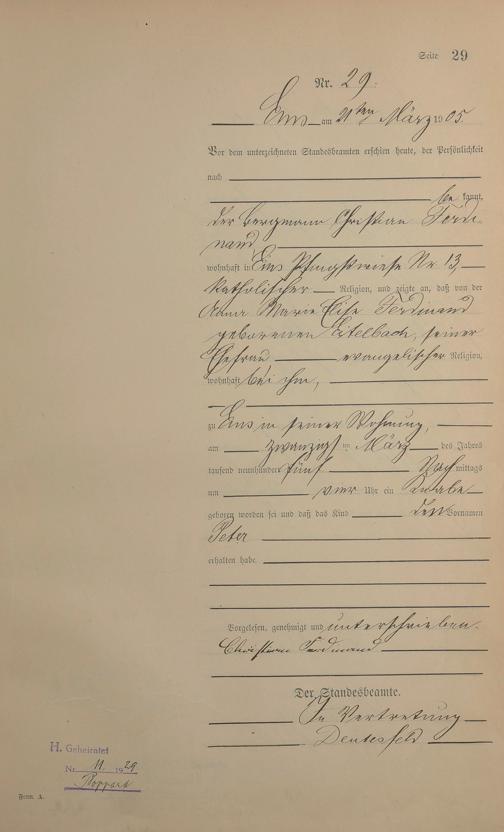 Seite 29
Nr. 29.
Ems am 21ten März 1905.
Vor dem unterzeichneten Standesbeamten erschien heute, der Persönlichkeit
nach
be kannt,
der Bergmann Christian Ferdi-
nand,
wohnhaft in Ems Pfingstwiese Nr. 13,
katholischer Religion, und zeigte an, daß von der
Anna Marie Elise Ferdinand
geborenen Eitelbach, seiner
Ehefrau evangelischer Religion,
wohnhaft bei ihm,
zu Ems in seiner Wohnung,
am zwanzigsten März des Jahres
tausend neunhundert fünf Nachmittags
um vier Uhr ein Knabe
geboren worden sei und daß das Kind den Vornamen
Peter
erhalten habe.
Vorgelesen, genehmigt und unterschrieben.
Christian Ferdinand
Der Standesbeamte.
In Vertretung
H. Geheiratet
Nr. 11. 1929
Boppard
Form. A.